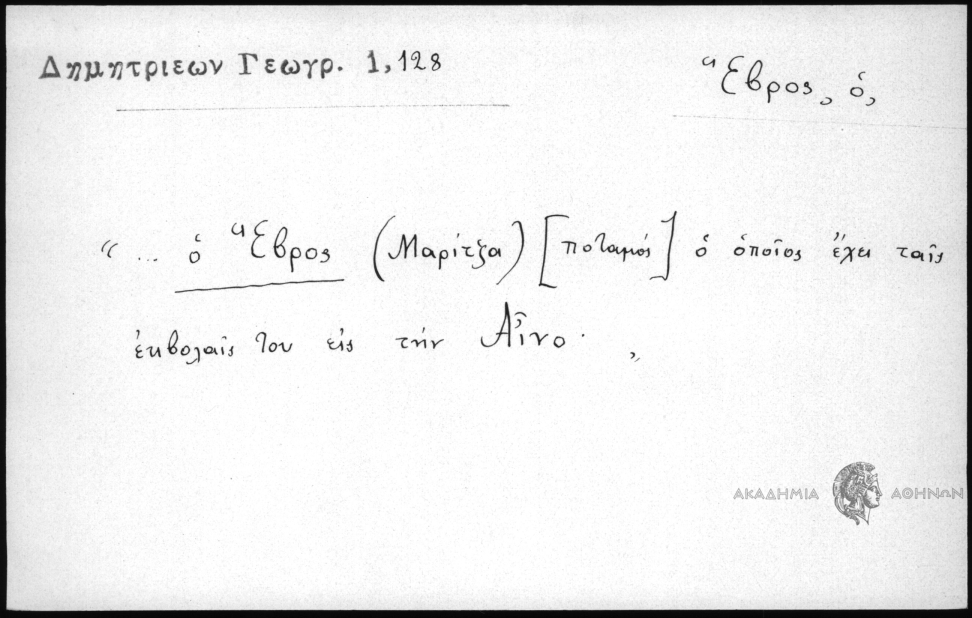 Δημητριεων Γεωγρ. 1,128
Ἕβρος, ὁ,
“ ... ὁ Ἕβρος (Μαρίτζα) [ποταμός] ὁ ὁποῖος ἔχει ταῖς
ἐκβολαῖς του εἰς τήν Αἶνο. „
ΑΚΑΔΗΜΙΑ ΑΘΗΝΩΝ